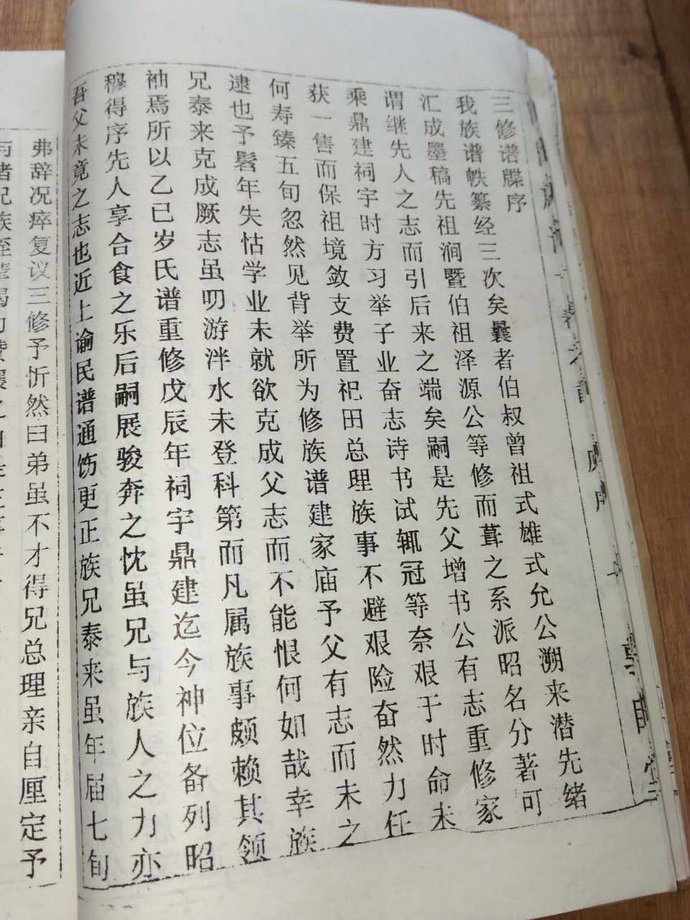 三修谱牒序
我族谱帙纂经三次矣曩者伯叔曾祖式雄式允公溯来潜先绪
汇成墨稿先祖涧暨伯祖泽源公等修而葺之系派昭名分著可
谓继先人之志而引后来之端矣嗣是先父增书公有志重修家
乘鼎建祠宇时方习举子业奋志诗书试辄冠等奈艰于时命未
获一售而保祖境敛支费置祀田总理族事不避艰险奋然力任
何寿臻五旬忽然见背举所为修族谱建家庙予父有志而未之
逮也予髫年失怙学业未就欲克成父志而不能恨何如哉幸族
兄泰来克成厥志虽叨游泮水未登科第而凡属族事颇赖其领
袖焉所以乙巳岁氏谱重修戊辰年祠宇鼎建迄今神位备列昭
穆得序先人享合食之乐后嗣展骏奔之忱虽兄与族人之力亦
吾父未竟之志也近上谕民谱通饬更正族兄泰来虽年届七旬
弗辞况瘁复议三修予忻然曰弟虽不才得兄总理亲自厘定予